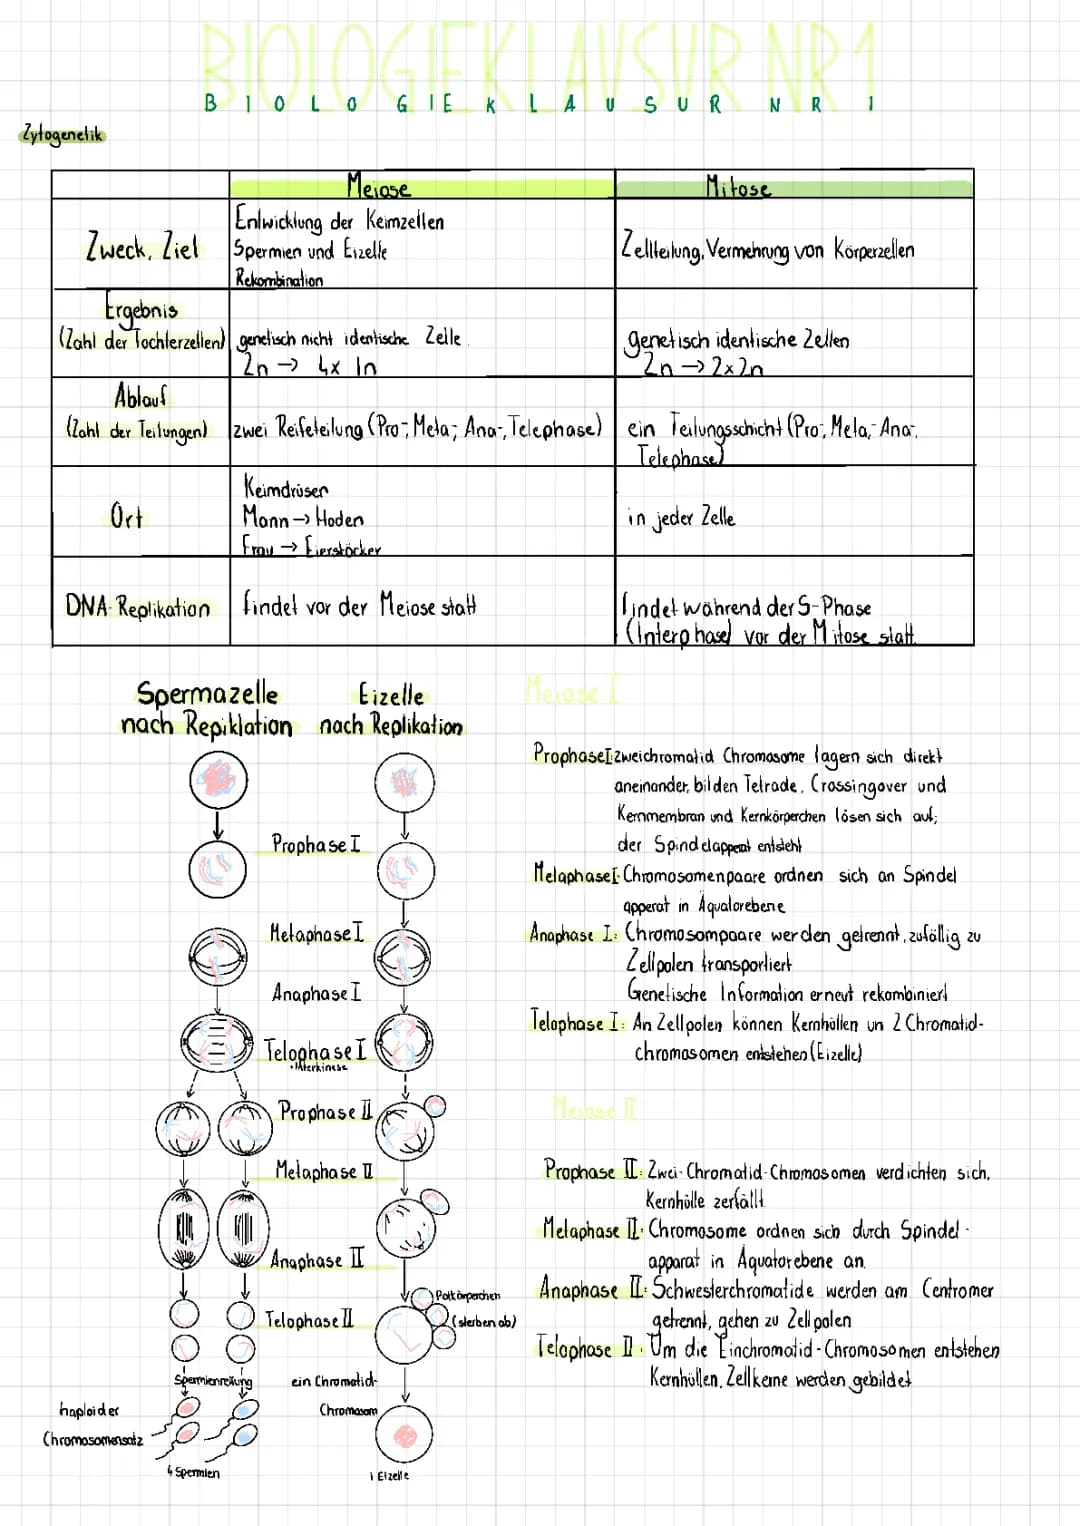 BIOLOGIEKLAUSUR NR1
BIOLOGIEKLAUSUR NR 1
Zytogenetik
Meiose
Mitose
Zweck, Ziel
Entwicklung der Keimzellen
Spermien und Eizelle
Rekombination
Zellteilung, Vermehrung von Körperzellen
Ergebnis
(Zahl der Tochterzellen)
genetisch nicht identische Zelle
2n → 4x 1n
genetisch identische Zellen
2n → 2x2n
Ablauf
(Zahl der Teilungen)
zwei Reifeteilung (Pro-, Meta-, Ana-, Telephase)
ein Teilungsschicht (Pro-, Meta-, Ana-,
Telephase)
Ort
Keimdrüsen
Mann → Hoden
Frau → Eierstöcker
in jeder Zelle
DNA-Replikation
findet vor der Meiose statt
findet während der S-Phase
(Interphase) vor der Mitose statt
Spermazelle
nach Repiklation
Eizelle
nach Replikation
Prophase I
Metaphase I
Anaphase I
Telophase I
+Interkinese
Prophase II
Metaphase II
Anaphase II
Telophase II
Polkörperchen
(sterben ab)
Spermienreifung
ein Chromatid-
Chromosom
haploider
Chromosomensatz
4 Spermien
1 Eizelle
Meiose I
Prophase I: zweichromatid Chromosome lagern sich direkt
aneinander, bilden Tetrade, Crossingover und
Kernmembran und Kernkörperchen lösen sich auf;
der Spindelapperat entsteht
Metaphase I: Chromosomenpaare ordnen sich an Spindel
apperat in Äquatorebene
Anaphase I: Chromosompaare werden getrennt, zufällig zu
Zellpolen transportiert
Genetische Information erneut rekombiniert
Telophase I: An Zellpolen können Kernhüllen un 2 Chromatid-
chromosomen entstehen (Eizelle)
Meiose II
Prophase II: Zwei-Chromatid-Chromosomen verdichten sich,
Kernhülle zerfällt
Metaphase II: Chromosome ordnen sich durch Spindel-
apparat in Äquatorebene an.
Anaphase II: Schwesterchromatide werden am Centromer
getrennt, gehen zu Zellpolen
Telophase II: Um die Einchromatid-Chromosomen entstehen
Kernhüllen, Zellkerne werden gebildet